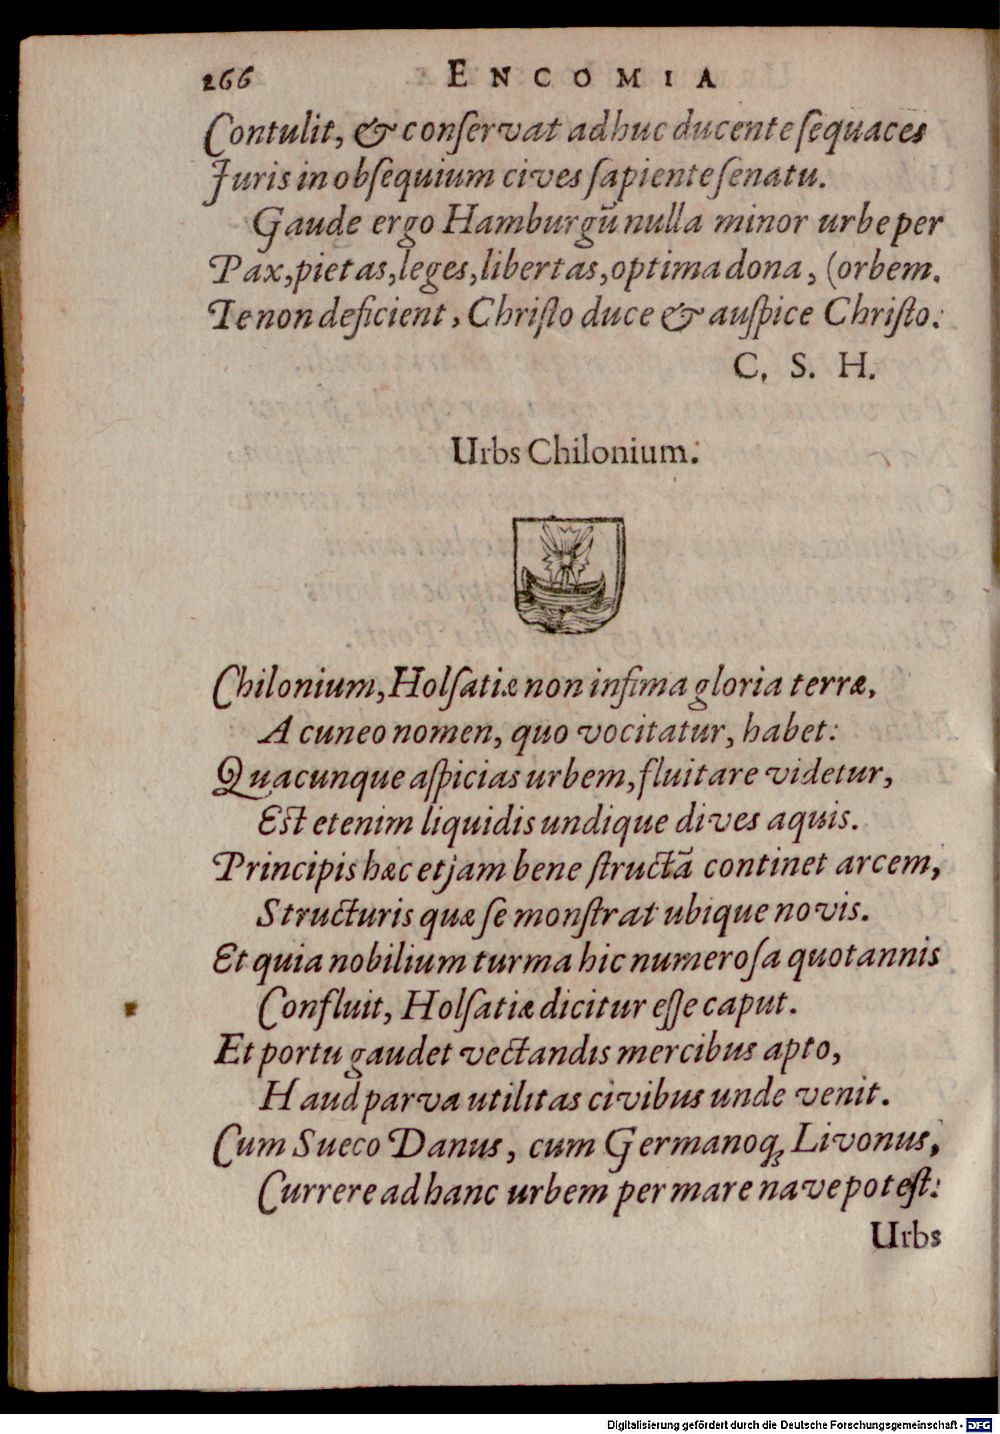 266 ENCOMIA
Contulit, & conſervat adhuc ducente ſequaces
Juris in obſequium cives ſapiente ſenatu.
Gaude ergo Hamburgū nulla minor urbe per
Pax, pietas, leges, libertas, optima dona, (orbem.
Te non deficient, Chriſto duce & auſpice Chriſto.
C. S. H.
Urbs Chilonium.
Chilonium, Holſatiæ non infima gloria terræ,
A cuneo nomen, quo vocitatur, habet:
Quacunque aſpicias urbem, fluitare videtur,
Est etenim liquidis undique dives aquis.
Principis hæc etjam bene ſtructā continet arcem,
Structuris quæ ſe monſtrat ubique novis.
Et quia nobilium turma hic numeroſa quotannis
Confluit, Holſatiæ dicitur eſſe caput.
Et portu gaudet vectandis mercibus apto,
Haud parva utilitas civibus unde venit.
Cum Sueco Danus, cum Germanoq; Livonus,
Currere ad hanc urbem per mare nave poteſt:
Urbs
Digitalisierung gefördert durch die Deutsche Forschungsgemeinschaft - DFG